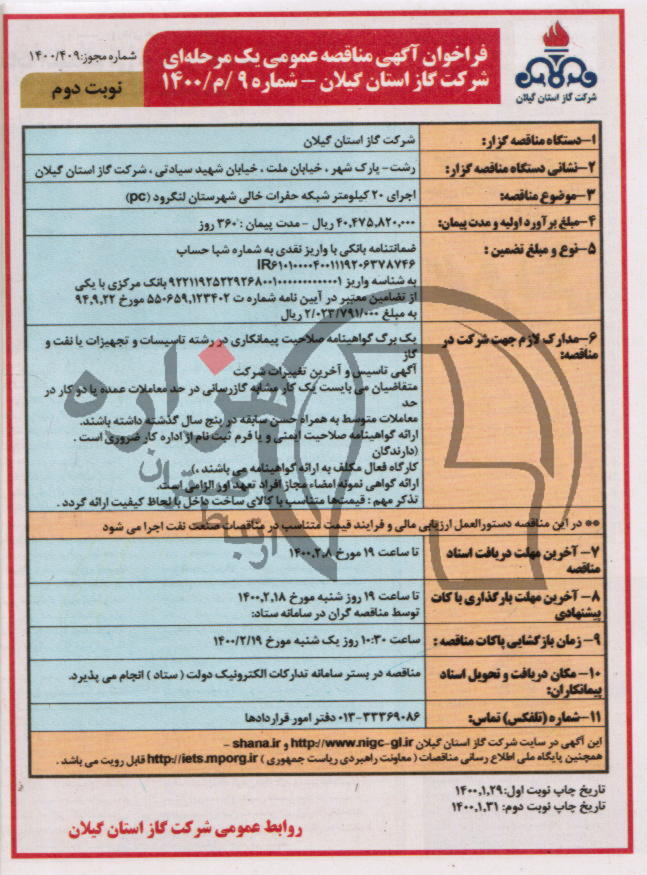 شرکت گاز استان گیلان
فراخوان آگهی مناقصه عمومی یک مرحله‌ای
شرکت گاز استان گیلان – شماره ۹ /م/۱۴۰۰
شماره مجوز: ۱۴۰۰/۴۰۹
نوبت دوم
۱-دستگاه مناقصه گزار: شرکت گاز استان گیلان
۲-نشانی دستگاه مناقصه گزار: رشت- پارک شهر ، خیابان ملت ، خیابان شهید سیادتی ، شرکت گاز استان گیلان
۳-موضوع مناقصه: اجرای ۲۰ کیلومتر شبکه حفرات خالی شهرستان لنگرود (pc)
۴-مبلغ برآورد اولیه و مدت پیمان: ۴۰,۴۷۵,۸۲۰,۰۰۰ ریال - مدت پیمان : ۳۶۰ روز
۵-نوع و مبلغ تضمین : ضمانتنامه بانکی با واریز نقدی به شماره شبا حساب
IR۶۱۰۱۰۰۰۰۴۰۰۱۱۱۹۲۰۶۳۷۸۷۴۶
به شناسه واریز ۹۲۲۱۱۹۲۵۲۲۹۲۶۸۰۰۱۰۰۰۰۰۰۰۰۰۰۰۰۱ بانک مرکزی با یکی
از تضامین معتبر در آیین نامه شماره ت ۵۵۰۶۵۹,۱۲۳۴۰۲ مورخ ۹۴,۹,۲۲
به مبلغ ۲/۰۲۳/۷۹۱/۰۰۰ ریال
۶-مدارک لازم جهت شرکت در
مناقصه:
یک برگ گواهینامه صلاحیت پیمانکاری در رشته تاسیسات و تجهیزات یا نفت و
گاز
آگهی تاسیس و آخرین تغییرات شرکت
متقاضیان می بایست یک کار مشابه گازرسانی در حد معاملات عمده یا دو کار در
حد
معاملات متوسط به همراه حسن سابقه در پنج سال گذشته داشته باشند.
ارائه گواهینامه صلاحیت ایمنی و یا فرم ثبت نام از اداره کار ضروری است .
(دارندگان
کارگاه فعال مکلف به ارائه گواهینامه می باشند .)
ارائه گواهی نمونه امضاء مجاز افراد تعهد آور الزامی است.
تذکر مهم : قیمت‌ها متناسب با کالای ساخت داخل با لحاظ کیفیت ارائه گردد .
** در این مناقصه دستورالعمل ارزیابی مالی و فرایند قیمت متناسب در مناقصات صنعت نفت اجرا می شود
۷- آخرین مهلت دریافت اسناد
مناقصه
تا ساعت ۱۹ مورخ ۱۴۰۰,۲,۸
۸- آخرین مهلت بارگذاری پاکات
پیشنهادی
تا ساعت ۱۹ روز شنبه مورخ ۱۴۰۰,۲,۱۸
توسط مناقصه گران در سامانه ستاد:
۹- زمان بازگشایی پاکات مناقصه : ساعت ۱۰:۳۰ روز یک شنبه مورخ ۱۴۰۰/۲/۱۹
۱۰- مکان دریافت و تحویل اسناد
پیمانکاران:
مناقصه در بستر سامانه تدارکات الکترونیک دولت ( ستاد ) انجام می پذیرد.
۱۱-شماره (تلفکس) تماس: ۰۱۳-۳۳۳۶۹۰۸۶ دفتر امور قراردادها
این آگهی در سایت شرکت گاز استان گیلان http://www.nigc-gl.ir و shana.ir -
همچنین پایگاه ملی اطلاع رسانی مناقصات ( معاونت راهبردی ریاست جمهوری ) http://iets.mporg.ir قابل رویت می باشد .
تاریخ چاپ نوبت اول: ۱۴۰۰,۱,۲۹
تاریخ چاپ نوبت دوم: ۱۴۰۰,۱,۳۱
روابط عمومی شرکت گاز استان گیلان
هزاره